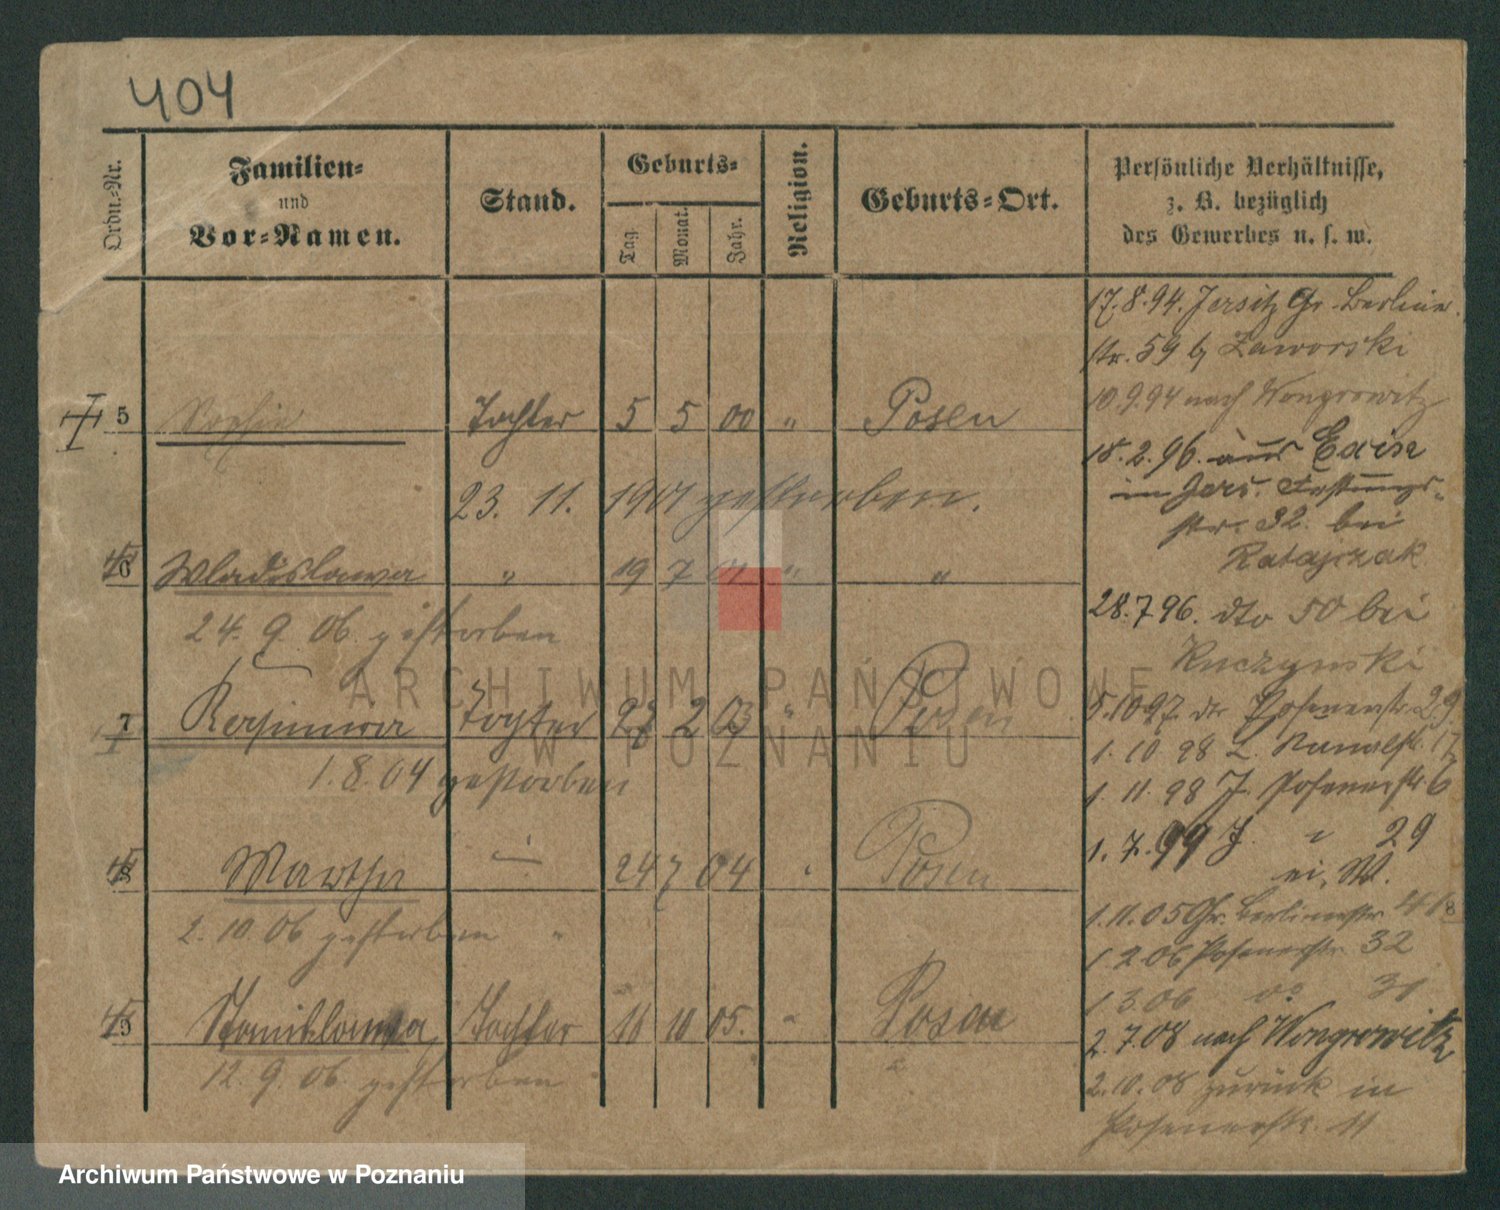 404
Ordn.=Nr.
Familien=
und
Vor=Namen.
Stand.
Geburts=
Tag.
Monat.
Jahr.
Religion.
Geburts=Ort.
Persönliche Verhältnisse,
z. B. bezüglich
des Gewerbes u. s. w.
17.8.94. Jersitz Gr. Berliner
str. 59 b/ Zaworski
10.9.94 nach Wongrowitz
5 Sophie Tochter 5 5 00 " Posen
18.2.96. aus
im Jers. Festungs-
23. 11. 1901 gestorben.
str. 32. bei
Ratajczak
6 Wladislawa " 19 7 01 " "
28.7.96. dto 50 bei
24. 9. 06. gestorben
Kuczynski
7 Kasimira Tochter 2 03 " Posen
5.10.97. Posenerstr. 29
1. 10 98 L. Kanalstr. 17
1.8.04 gestorben
1. 11. 98 J. Posenerstr. 6
1. 7. 99 J. " 29
8 Martha 24 7 04 Posen
1.11.05 Gr. Berlinerstr.
2. 10. 06 gestorben "
1 2 06 Posenerstr. 32
1 3 06 do 31
9 Stanislawa Tochter 11 10 05. " Posen
2. 7.08 nach Wongrowitz
12. 9. 06. gestorben
2.10.08 zurück in
Posenerstr. 11
ARCHIWUM PAŃSTWOWE
W POZNANIU
Archiwum Państwowe w Poznaniu